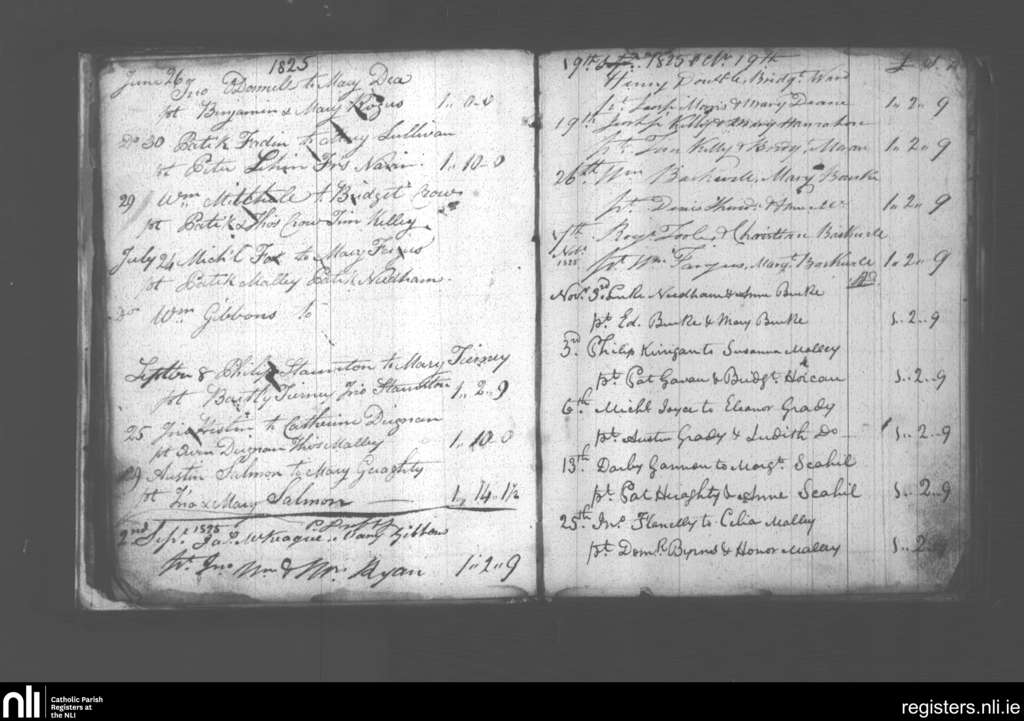 1825
June 26 Jno O'Donnell to Mary Dea
pt Benjamin & Mary 1,, 0-0
Do 30 Patik Fadin to Mary Sullivan
pt Peter 1,, 10-0
29 Wm Mitchele to Bridget Crow
pt Patik & Thos Crow Tim Kelley
July 24 Mich'l Fox to Mary Fergus
pt Patik Malley Patik Needham
Do Wm Gibbons to
Septbr 8 Philip Staunton to Mary Tierney
pt Bartly Tierney Jno Staunton 1,, 2,, 9
25 Jno to Catherine Duignan
pt Owen Duignan Thos Malley 1,, 10,, 0
29 Austin Salmon to Mary Geaghty
pt Jno & Mary Salmon 1,, 14,, 1½
2nd Sept. 1825 Jas. McKeague & Mary Gibbon
pt. Jno & Ryan 1,, 2,, 9
19th 1825 Octr. 19th £ S
Henry Double, Bridgt. Ward
pt. & Mary Deane 1,, 2,, 9
19th Joseph Kelly & Mary Hanrahan
pt. Kelly & Bridgt. Moran 1,, 2,, 9
26th Wm Baskwile, Mary Bourke
pt. Denis 1,, 2,, 9
7th Novr. 1825 Roger Toole, & Christian Baskwile
pt. Wm. Fargus, Margt. Baskwile 1,, 2,, 9
Novr. 3rd Needham & Anne Burke
pt. Ed. Burke & Mary Burke 1,, 2,, 9
3rd Philip Kinigan to Susanna Malley
pt. Pat Gavan & Bridgt. Horcan 1,, 2,, 9
6th Michl Joyce to Eleonor Grady
pt. Austin Grady & Judith Do 1,, 2,, 9
13th Darby Gannon to Margt. Scahil
pt. Pat Heraghty & Anne Scahil 1,, 2,, 9
25th Jno. Flanelly to Celia Malley
pt. Domk. Byrns & Honor Malley 1,, 2,, 9
nli
Catholic Parish
Registers at
the NLI
registers.nli.ie